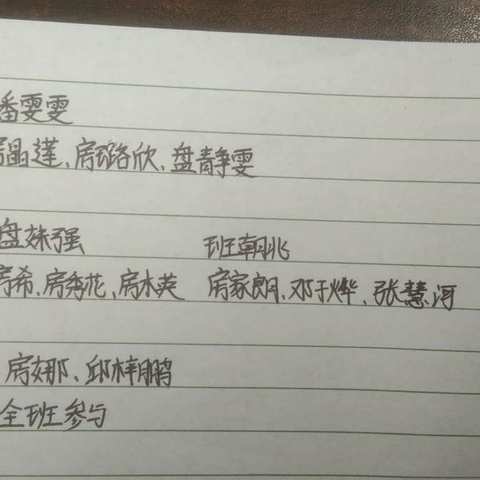 潘雯雯
晶莲、房璐欣、盘静雯
盘姝强 班朝兆
房希、房秀花、房木英 房家朗、邓于烨、张慧河
房娜、邱梓鹏
全班参与